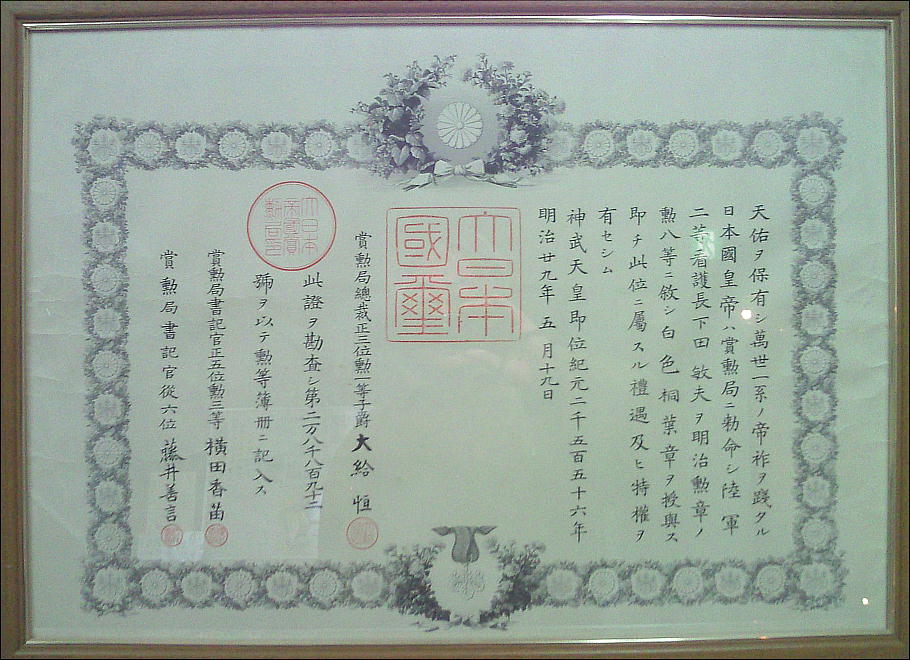 天佑ヲ保有シ萬世一系ノ帝祚ヲ踐タル
日本國皇帝ハ賞勲局ニ勅命シ陸軍
二等看護長下田敏夫ヲ明治勲章ノ
勲八等ニ敘シ白色桐葉章ヲ授與ス
即チ此位ニ屬スル禮遇及ヒ特權ヲ
有セシム
神武天皇即位紀元二千五百五十六年
明治廿九年五月十九日
大日本國璽
賞勲局總裁正三位勲一等子爵大給恒
大日本帝國賞勲局印
此證ヲ勘査シ第二万八千八百九十二
號ヲ以テ勲等簿册ニ記入ス
賞勲局書記官正五位勲三等横田香苗
賞勲局書記官從六位藤井善言